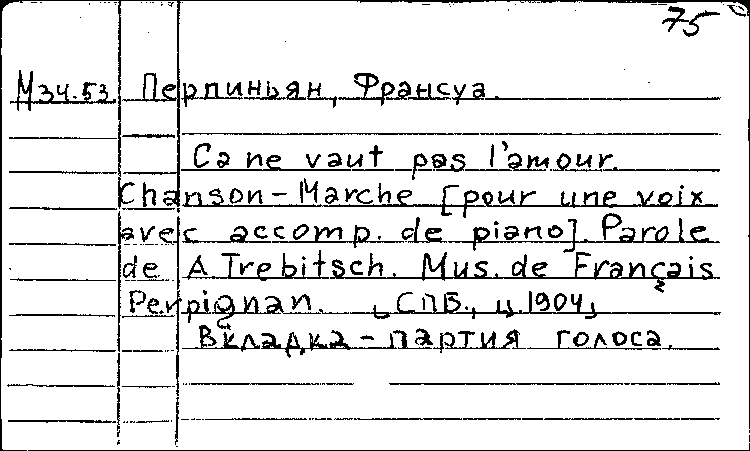 75
М34.53 Перпиньян, Франсуа.
Ca ne vaut pas l'amour.
Chanson-Marche [pour une voix
avec accomp. de piano]. Parole
de A. Trebitsch. Mus. de Français
Perpignan. [СПБ., ц.1904]
Вкладка - партия голоса.